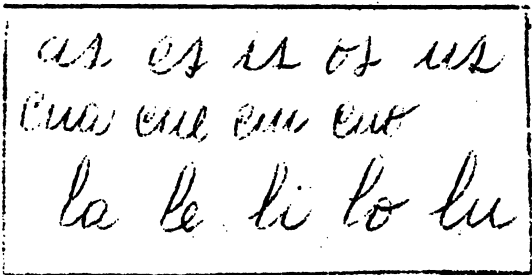 as es is os us
cua cue cui cuo
la le li lo lu